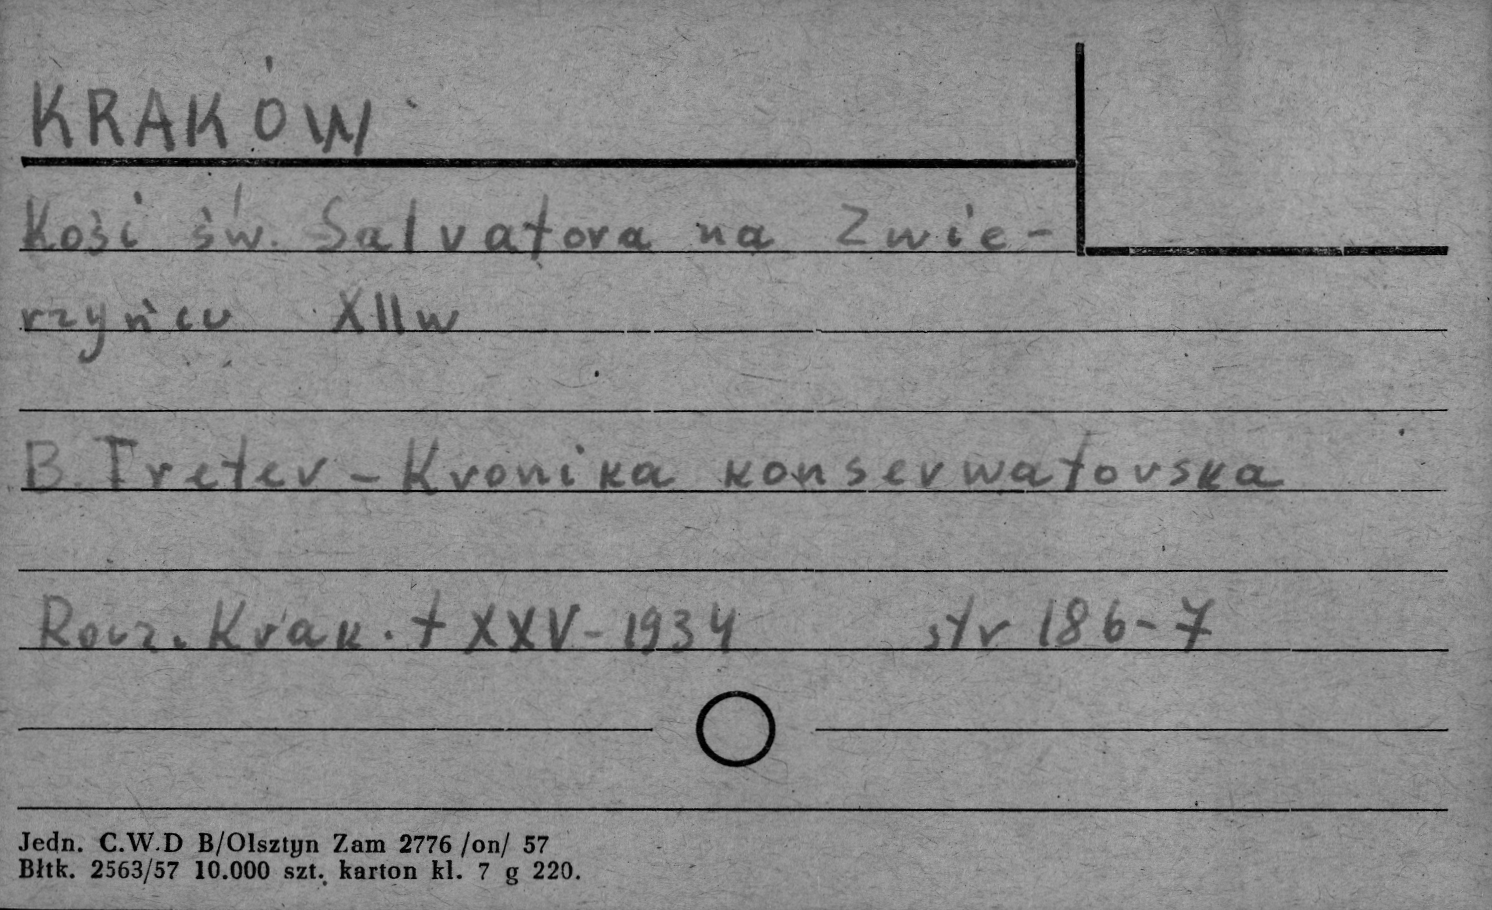 KRAKÓW
Kość św. Salvatora na Zwie-
rzyńcu XII w
B. Treter - Kronika konserwatorska
Rocz. Krak. t XXV - 1934 str 186-7
Jedn. C.W.D B/Olsztyn Zam 2776 /on/ 57
Błtk. 2563/57 10.000 szt. karton kl. 7 g 220.